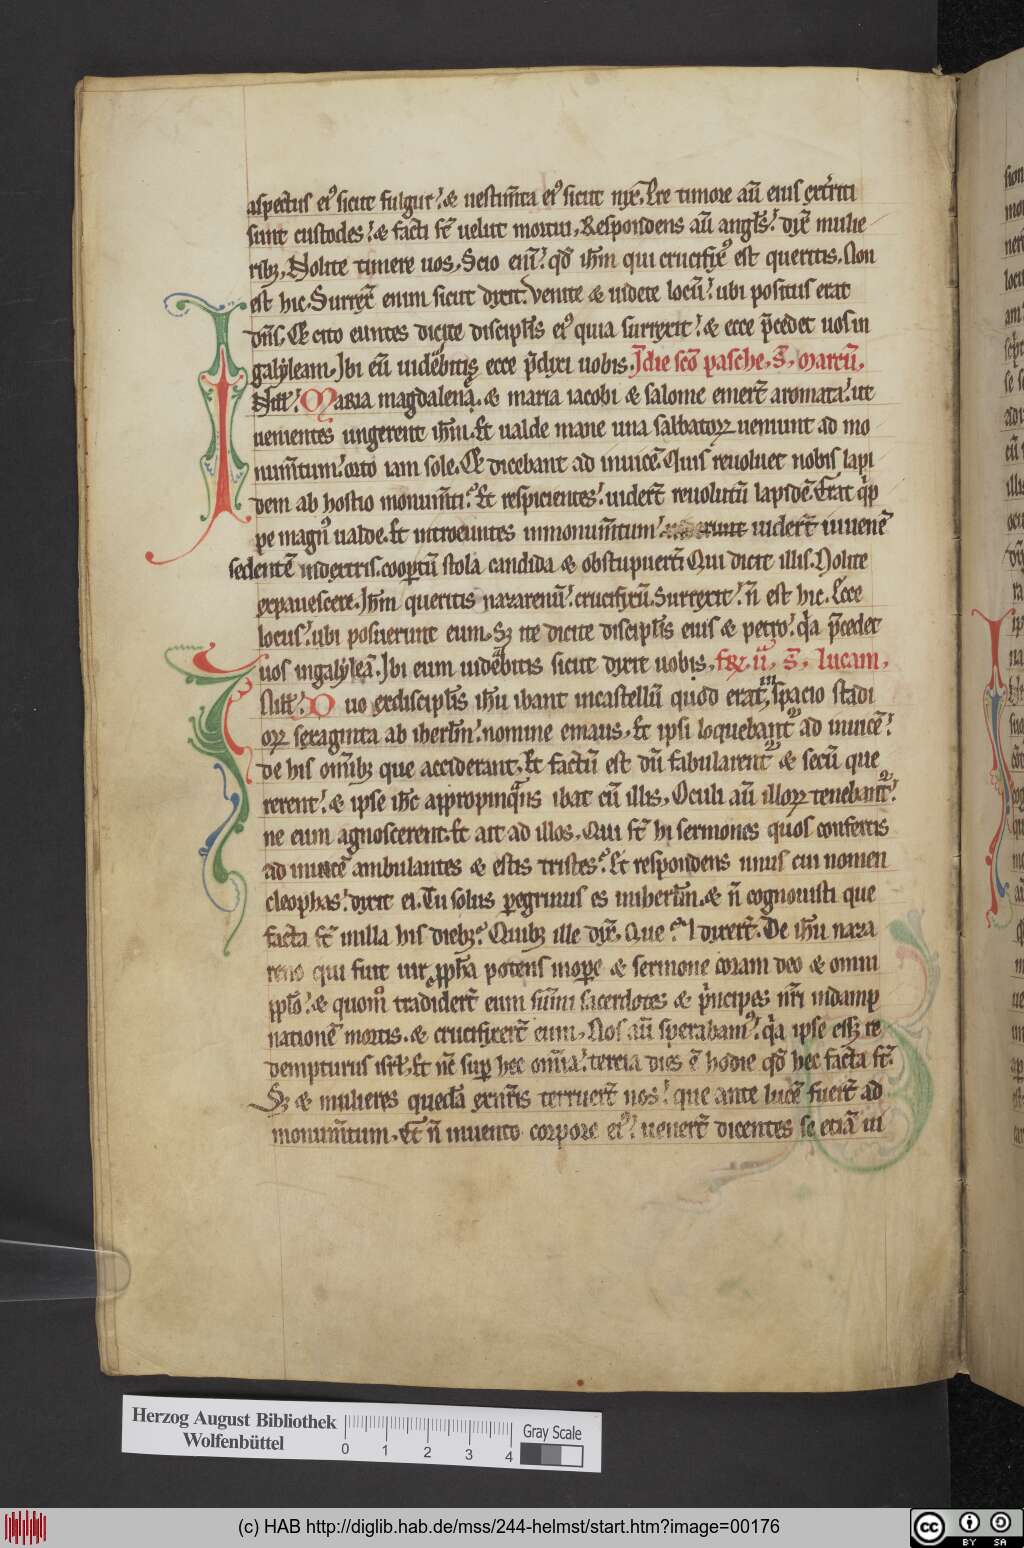 aspectus eiꝰ sicut fulgur. ⁊ uestim̄ta eiꝰ sicut nix. Pre timore au̅ eius ext̄riti
sunt custodes. ⁊ facti st̄ uelut mortui. Respondens au̅ angl̄s. dix̄ mulie
ribꝫ. Nolite timere uos. Scio eni̅. qd̄ ih̄m qui crucifixꝰ est queritis. Non
est hic. Surrex̄ enim sicut dixit. Venite ⁊ uidete locu̅. ubi positus erat
dn̄s. Et cito euntes dicite discipl̄is eiꝰ quia surrexit. ⁊ ecce p̄cedet uos in
galyleam. Ibi eu̅ uidebitis ecce p̄dixi uobis. I die sc̄o pasche. s. marcu̅.
Maria magdalena. ⁊ maria iacobi ⁊ salome emer̄t aromata. ut
uenientes ungerent ih̄m. Et ualde mane una sabbatoꝝ ueniunt ad mo
num̄tum. orto iam sole. Et dicebant ad inuice̅. Quis reuoluet nobis lapi
dem ab hostio monum̄ti. Et respicientes. uider̄t reuolutu̅ lapide̅. Erat q̄p
pe magnꝰ ualde. Et introeuntes in monum̄tum. uiderunt uider̄t iuuene̅
sedente̅ in dextris. coop̄tu̅ stola candida ⁊ obstupuer̄t. Qui dicit illis. Nolite
expauescere. Ih̄m queritis nazarenu̅. crucifixu̅. Surrexit. n̄ est hic. Ecce
locus. ubi posuerunt eum. Sꝫ ite dicite discipl̄is eius ⁊ petro. q̄a p̄cedet
uos in galylea̅. Ibi eum uidebitis sicut dixit uobis. s. lucam.
Duo ex discipl̄is ih̄u ibant in castellu̅ quod erat in spacio stadi
oꝝ sexaginta ab iherl̄m. nomine emaus. Et ipsi loquebant̄ ad inuice̅.
de his om̄ibꝫ que acciderant. Et factu̅ est du̅ fabularent̄ ⁊ secu̅ que
rerent. ⁊ ipse ih̄c appropinq̄ns ibat cu̅ illis. Oculi au̅ illoꝝ tenebant̄.
ne eum agnoscerent. Et ait ad illos. Qui st̄ hi sermones quos confertis
ad inuice̅ ambulantes ⁊ estis tristes. Et respondens unus cui nomen
cleophas. dixit ei. Tu solus peregrinus es in iherl̄m. ⁊ n̄ cognouisti que
facta st̄ in illa his diebꝫ. Quibꝫ ille dix̄. Que. dixer̄t. De ih̄u naza
reno qui fuit uir pph̄a potens in ope ⁊ sermone coram deo ⁊ omni
ppl̄o. ⁊ quom̊ tradider̄t eum su̅mi sacerdotes ⁊ p̄ncipes nr̄i in dāmp
natione̅ mortis. ⁊ crucifixer̄t eum. Nos au̅ sperabamꝰ. q̄a ipse esset re
dempturus isrl̄. Et nc̄ sup hec om̄ia. tercia dies e̅ hodie qd̄ hec facta st̄.
Sꝫ ⁊ mulieres queda̅ ex nr̄is terruer̄t nos. que ante luce̅ fuer̄t ad
monum̄tum. Et n̄ inuento corpore eiꝰ. uener̄t dicentes se etia̅ ui
Herzog August Bibliothek
Wolfenbüttel
0 1 2 3 4
Gray Scale
(c) HAB http://diglib.hab.de/mss/244-helmst/start.htm?image=00176
cc BY SA